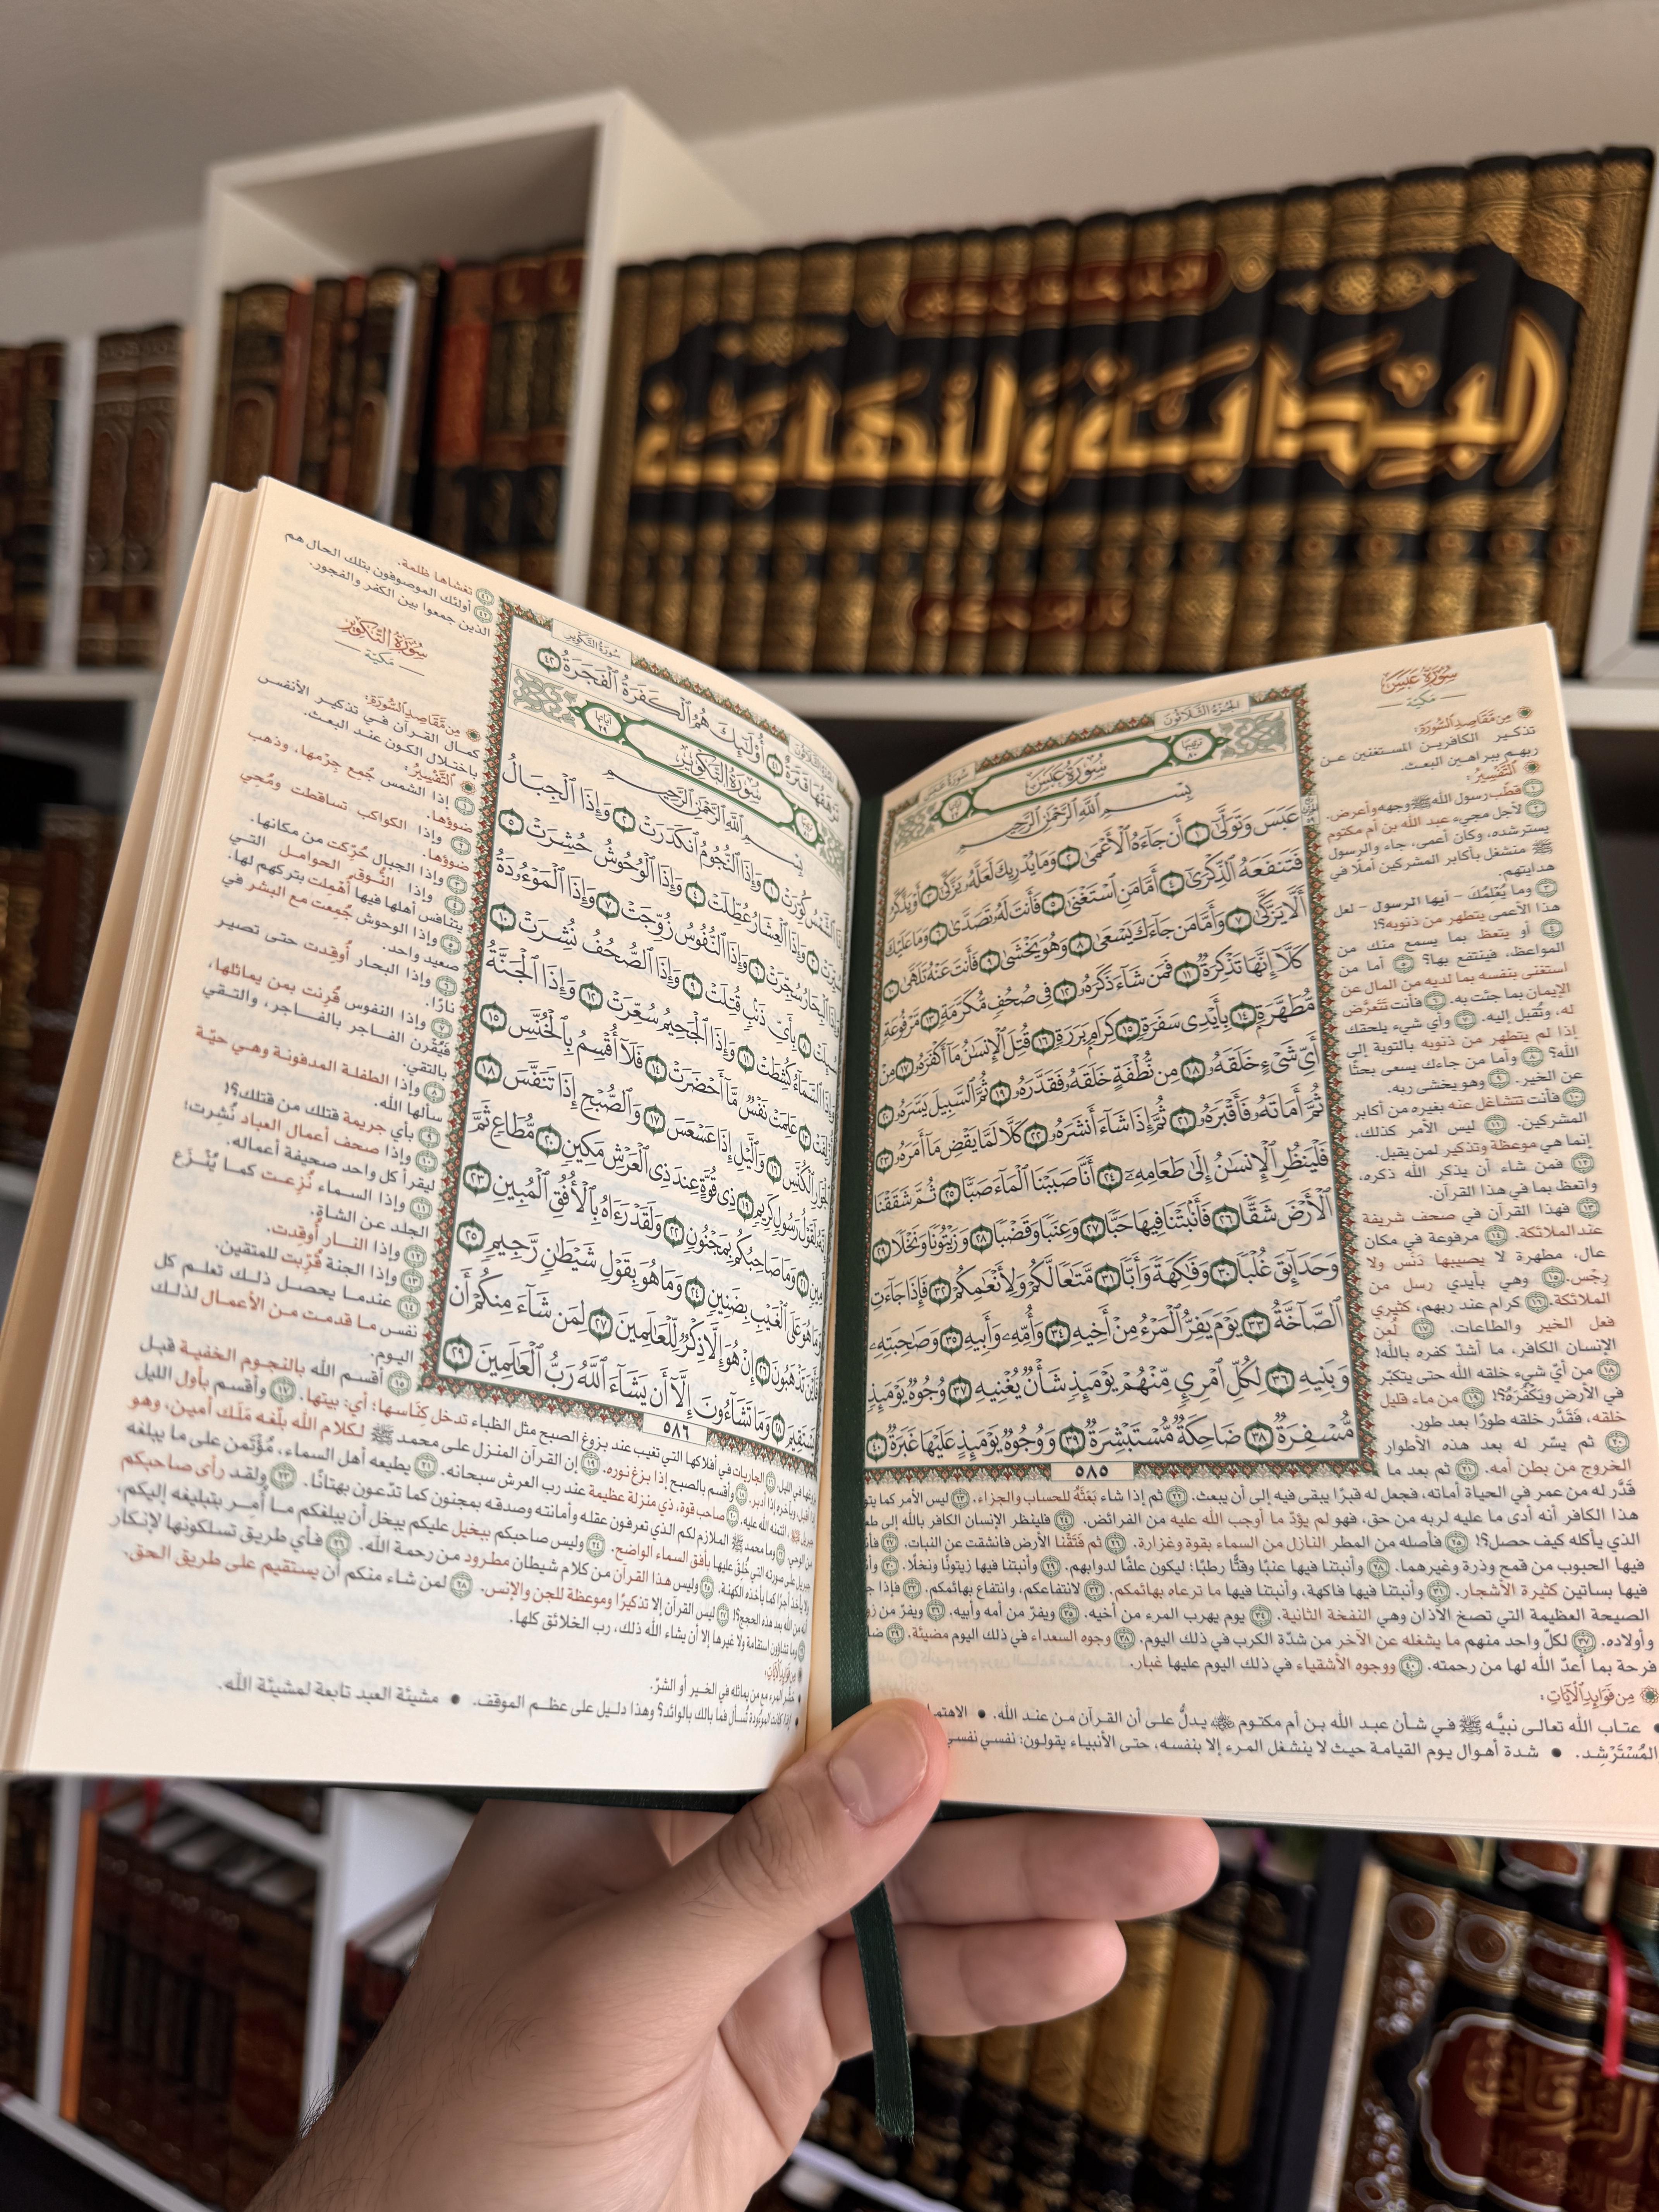 البداية والنهاية
سُورَةُ عَبَسَ
مَكيّة
مِن مَّقَاصِدِ السُّورَةِ:
تذكير الكافرين المستغنين عن
ربهم ببراهين البعث.
التَّفْسِيرُ:
١ قطّب رسول الله ﷺ وجهه وأعرض.
٢ لأجل مجيء عبد الله بن أم مكتوم
يسترشده، وكان أعمى، جاء والرسول
ﷺ منشغل بأكابر المشركين أملًا في
هدايتهم.
٣ وما يُعْلِمُكَ - أيها الرسول - لعل
هذا الأعمى يتطهر من ذنوبه؟!
٤ أو يتعظ بما يسمع منك من
المواعظ، فينتفع بها؟ ٥ أما من
استغنى بنفسه بما لديه من المال عن
الإيمان بما جئت به. ٦ فأنت تَتَعرَّض
له، وتُقبل إليه. ٧ وأي شيء يلحقك
إذا لم يتطهر من ذنوبه بالتوبة إلى
الله؟ ٨ وأما من جاءك يسعى بحثًا
عن الخير. ٩ وهو يخشى ربه.
١٠ فأنت تتشاغل عنه بغيره من أكابر
المشركين. ١١ ليس الأمر كذلك،
إنما هي موعظة وتذكير لمن يقبل.
١٢ فمن شاء أن يذكر الله ذكره،
واتعظ بما في هذا القرآن.
١٣ فهذا القرآن في صحف شريفة
عند الملائكة. ١٤ مرفوعة في مكان
عال، مطهرة لا يصيبها دَنَس ولا
رِجْس. ١٥ وهي بأيدي رسل من
الملائكة. ١٦ كرام عند ربهم، كثيري
فعل الخير والطاعات. ١٧ لُعِن
الإنسان الكافر، ما أشدّ كفره بالله!
١٨ من أيّ شيء خلقه الله حتى يتكبّر
في الأرض ويَكْفُرَهُ؟! ١٩ من ماء قليل
خلقه، فَقَدَّر خلقه طورًا بعد طور.
٢٠ ثم يسّر له بعد هذه الأطوار
الخروج من بطن أمه. ٢١ ثم بعد ما
الجُزءُ الثَّلَاثُونَ
سُورَةُ عَبَسَ
ترتيبها ٨٠
سُورَةُ عَبَسَ
آياتها ٤٢
بِسْمِ ٱللَّهِ ٱلرَّحْمَٰنِ ٱلرَّحِيمِ
عَبَسَ وَتَوَلَّىٰٓ ١ أَن جَآءَهُ ٱلْأَعْمَىٰ ٢ وَمَا يُدْرِيكَ لَعَلَّهُۥ يَزَّكَّىٰٓ ٣ أَوْ يَذَّكَّرُ
فَتَنفَعَهُ ٱلذِّكْرَىٰٓ ٤ أَمَّا مَنِ ٱسْتَغْنَىٰ ٥ فَأَنتَ لَهُۥ تَصَدَّىٰ ٦ وَمَا عَلَيْكَ
أَلَّا يَزَّكَّىٰ ٧ وَأَمَّا مَن جَآءَكَ يَسْعَىٰ ٨ وَهُوَ يَخْشَىٰ ٩ فَأَنتَ عَنْهُ تَلَهَّىٰ ١٠
كَلَّآ إِنَّهَا تَذْكِرَةٌ ١١ فَمَن شَآءَ ذَكَرَهُۥ ١٢ فِى صُحُفٍ مُّكَرَّمَةٍ ١٣ مَّرْفُوعَةٍ
مُّطَهَّرَةٍۭ ١٤ بِأَيْدِى سَفَرَةٍ ١٥ كِرَامٍۭ بَرَرَةٍ ١٦ قُتِلَ ٱلْإِنسَٰنُ مَآ أَكْفَرَهُۥ ١٧ مِنْ
أَىِّ شَىْءٍ خَلَقَهُۥ ١٨ مِن نُّطْفَةٍ خَلَقَهُۥ فَقَدَّرَهُۥ ١٩ ثُمَّ ٱلسَّبِيلَ يَسَّرَهُۥ ٢٠
ثُمَّ أَمَاتَهُۥ فَأَقْبَرَهُۥ ٢١ ثُمَّ إِذَا شَآءَ أَنشَرَهُۥ ٢٢ كَلَّا لَمَّا يَقْضِ مَآ أَمَرَهُۥ ٢٣
فَلْيَنظُرِ ٱلْإِنسَٰنُ إِلَىٰ طَعَامِهِۦٓ ٢٤ أَنَّا صَبَبْنَا ٱلْمَآءَ صَبًّا ٢٥ ثُمَّ شَقَقْنَا
ٱلْأَرْضَ شَقًّا ٢٦ فَأَنۢبَتْنَا فِيهَا حَبًّا ٢٧ وَعِنَبًا وَقَضْبًا ٢٨ وَزَيْتُونًا وَنَخْلًا ٢٩
وَحَدَآئِقَ غُلْبًا ٣٠ وَفَٰكِهَةً وَأَبًّا ٣١ مَّتَٰعًا لَّكُمْ وَلِأَنْعَٰمِكُمْ ٣٢ فَإِذَا جَآءَتِ
ٱلصَّآخَّةُ ٣٣ يَوْمَ يَفِرُّ ٱلْمَرْءُ مِنْ أَخِيهِ ٣٤ وَأُمِّهِۦ وَأَبِيهِ ٣٥ وَصَٰحِبَتِهِۦ
وَبَنِيهِ ٣٦ لِكُلِّ ٱمْرِئٍ مِّنْهُمْ يَوْمَئِذٍ شَأْنٌ يُغْنِيهِ ٣٧ وُجُوهٌ يَوْمَئِذٍ
مُّسْفِرَةٌ ٣٨ ضَاحِكَةٌ مُّسْتَبْشِرَةٌ ٣٩ وَوُجُوهٌ يَوْمَئِذٍ عَلَيْهَا غَبَرَةٌ ٤٠
٥٨٥
قَدَّر له من عمر في الحياة أماته، فجعل له قبرًا يبقى فيه إلى أن يبعث. ٢٢ ثم إذا شاء بَعْثَهُ للحساب والجزاء. ٢٣ ليس الأمر كما
هذا الكافر أنه أدى ما عليه لربه من حق، فهو لم يؤدّ ما أوجب الله عليه من الفرائض. ٢٤ فلينظر الإنسان الكافر بالله إلى
الذي يأكله كيف حصل؟! ٢٥ فأصله من المطر النازل من السماء بقوة وغزارة. ٢٦ ثم فَتَقْنا الأرض فانشقت عن النبات. ٢٧
فيها الحبوب من قمح وذرة وغيرهما. ٢٨ وأنبتنا فيها عنبًا وقتًّا رطبًا؛ ليكون علفًا لدوابهم. ٢٩ وأنبتنا فيها زيتونًا ونخلًا. ٣٠
فيها بساتين كثيرة الأشجار. ٣١ وأنبتنا فيها فاكهة، وأنبتنا فيها ما ترعاه بهائمكم. ٣٢ لانتفاعكم، وانتفاع بهائمكم. ٣٣ فإذا
الصيحة العظيمة التي تصخ الآذان وهي النفخة الثانية. ٣٤ يوم يهرب المرء من أخيه. ٣٥ ويفرّ من أمه وأبيه. ٣٦ ويفرّ من
وأولاده. ٣٧ لكلّ واحد منهم ما يشغله عن الآخر من شدّة الكرب في ذلك اليوم. ٣٨ وجوه السعداء في ذلك اليوم مضيئة. ٣٩
فرحة بما أعدّ الله لها من رحمته. ٤٠ ووجوه الأشقياء في ذلك اليوم عليها غبار.
مِن فَوَائِدِ الْآيَاتِ:
• عتاب الله تعالى نبيَّه ﷺ في شأن عبد الله بن أم مكتوم يدلُّ على أن القرآن من عند الله. •
المُسْتَرْشِد. • شدة أهوال يوم القيامة حيث لا ينشغل المرء إلا بنفسه، حتى الأنبياء يقولون: نفسي
٤١ تغشاها ظلمة.
٤٢ أولئك الموصوفون بتلك الحال هم
الذين جمعوا بين الكفر والفجور.
سُورَةُ التَّكْوِيرِ
مَكيّة
مِن مَّقَاصِدِ السُّورَةِ:
كمال القرآن في تذكير الأنفس
باختلال الكون عند البعث.
التَّفْسِيرُ:
١ إذا الشمس جُمِع جِرْمها، وذهب
ضوؤها.
٢ وإذا الكواكب تساقطت ومُحِي
ضوؤها.
٣ وإذا الجبال حُرِّكت من مكانها.
٤ وإذا النُّوق الحوامل التي
يتنافس أهلها فيها أُهْمِلت بتركهم لها.
٥ وإذا الوحوش جُمِعت مع البشر في
صعيد واحد.
٦ وإذا البحار أُوقِدت حتى تصير
نارًا.
٧ وإذا النفوس قُرِنت بمن يماثلها،
فَيُقْرن الفاجر بالفاجر، والتقي
بالتقي.
٨ وإذا الطفلة المدفونة وهي حيّة
سألها الله.
٩ بأي جريمة قتلك من قتلك؟!
١٠ وإذا صحف أعمال العباد نُشِرت؛
ليقرأ كل واحد صحيفة أعماله.
١١ وإذا السماء نُزِعت كما يُنْزَع
الجلد عن الشاة.
١٢ وإذا النار أُوقِدت.
١٣ وإذا الجنة قُرِّبت للمتقين.
١٤ عندما يحصل ذلك تعلم كل
نفس ما قدمت من الأعمال لذلك
اليوم.
١٥ أقسم الله بالنجوم الخفية قبل
الجُزءُ الثَّلَاثُونَ
سُورَةُ التَّكْوِيرِ
تَرْهَقُهَا قَتَرَةٌ ٤١ أُو۟لَٰٓئِكَ هُمُ ٱلْكَفَرَةُ ٱلْفَجَرَةُ ٤٢
سُورَةُ التَّكْوِيرِ
آياتها ٢٩
بِسْمِ ٱللَّهِ ٱلرَّحْمَٰنِ ٱلرَّحِيمِ
ٱلشَّمْسُ كُوِّرَتْ ١ وَإِذَا ٱلنُّجُومُ ٱنكَدَرَتْ ٢ وَإِذَا ٱلْجِبَالُ
سُيِّرَتْ ٣ وَإِذَا ٱلْعِشَارُ عُطِّلَتْ ٤ وَإِذَا ٱلْوُحُوشُ حُشِرَتْ ٥
ٱلْبِحَارُ سُجِّرَتْ ٦ وَإِذَا ٱلنُّفُوسُ زُوِّجَتْ ٧ وَإِذَا ٱلْمَوْءُۥدَةُ
سُئِلَتْ ٨ بِأَىِّ ذَنۢبٍ قُتِلَتْ ٩ وَإِذَا ٱلصُّحُفُ نُشِرَتْ ١٠
ٱلسَّمَآءُ كُشِطَتْ ١١ وَإِذَا ٱلْجَحِيمُ سُعِّرَتْ ١٢ وَإِذَا ٱلْجَنَّةُ
أُزْلِفَتْ ١٣ عَلِمَتْ نَفْسٌ مَّآ أَحْضَرَتْ ١٤ فَلَآ أُقْسِمُ بِٱلْخُنَّسِ ١٥
ٱلْجَوَارِ ٱلْكُنَّسِ ١٦ وَٱلَّيْلِ إِذَا عَسْعَسَ ١٧ وَٱلصُّبْحِ إِذَا تَنَفَّسَ ١٨
إِنَّهُۥ لَقَوْلُ رَسُولٍ كَرِيمٍ ١٩ ذِى قُوَّةٍ عِندَ ذِى ٱلْعَرْشِ مَكِينٍ ٢٠ مُّطَاعٍ ثَمَّ
أَمِينٍ ٢١ وَمَا صَاحِبُكُم بِمَجْنُونٍ ٢٢ وَلَقَدْ رَءَاهُ بِٱلْأُفُقِ ٱلْمُبِينِ ٢٣
وَمَا هُوَ عَلَى ٱلْغَيْبِ بِضَنِينٍ ٢٤ وَمَا هُوَ بِقَوْلِ شَيْطَٰنٍ رَّجِيمٍ ٢٥
فَأَيْنَ تَذْهَبُونَ ٢٦ إِنْ هُوَ إِلَّا ذِكْرٌ لِّلْعَٰلَمِينَ ٢٧ لِمَن شَآءَ مِنكُمْ أَن
يَسْتَقِيمَ ٢٨ وَمَا تَشَآءُونَ إِلَّآ أَن يَشَآءَ ٱللَّهُ رَبُّ ٱلْعَٰلَمِينَ ٢٩
٥٨٦
بزوغها في الليل. ١٦ الجاريات في أفلاكها التي تغيب عند بزوغ الصبح مثل الظباء تدخل كِنَاسها؛ أي: بيتها. ١٧ وأقسم بأول الليل
إذا أقبل، وبآخره إذا أدبر. ١٨ وأقسم بالصبح إذا بزغ نوره. ١٩ إن القرآن المنزل على محمد ﷺ لكلام الله بلّغه مَلَك أمين، وهو
ائتمنه الله عليه. ٢٠ صاحب قوة، ذي منزلة عظيمة عند رب العرش سبحانه. ٢١ يطيعه أهل السماء، مُؤْتَمن على ما يبلغه
من الوحي. ٢٢ وما محمد ﷺ الملازم لكم الذي تعرفون عقله وأمانته وصدقه بمجنون كما تدّعون بهتانًا. ٢٣ ولقد رأى صاحبكم
جبريل على صورته التي خُلِق عليها بأفق السماء الواضح. ٢٤ وليس صاحبكم ببخيل عليكم يبخل أن يبلغكم ما أُمِر بتبليغه إليكم،
ولا يأخذ أجرًا كما يأخذه الكهنة. ٢٥ وليس هذا القرآن من كلام شيطان مطرود من رحمة الله. ٢٦ فأي طريق تسلكونها لإنكار
أنه من الله بعد هذه الحجج؟! ٢٧ ليس القرآن إلا تذكيرًا وموعظة للجن والإنس. ٢٨ لمن شاء منكم أن يستقيم على طريق الحق.
٢٩ وما تشاؤون استقامة ولا غيرها إلا أن يشاء الله ذلك، رب الخلائق كلها.
مِن فَوَائِدِ الْآيَاتِ:
• حَشْر المرء مع من يماثله في الخير أو الشرّ.
• إذا كانت الموءُودة تُسأل فما بالك بالوائد؟ وهذا دليل على عظم الموقف. • مشيئة العبد تابعة لمشيئة الله.